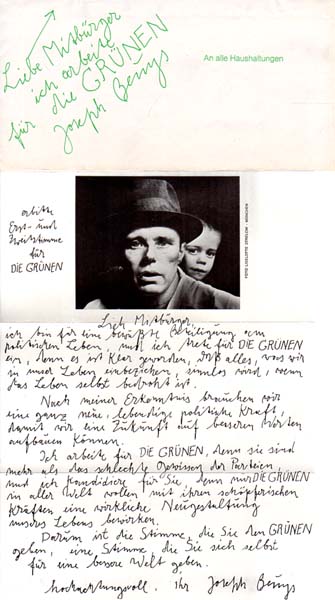 Liebe Mitbürger
ich arbeite
für die GRÜNEN
Joseph Beuys
An alle Haushaltungen
erbitte
Erst- und
Zweitstimme
für
DIE GRÜNEN
MÜNCHEN
Lieb. Mitbürger,
ich bin für eine bewußte Beteiligung am
politischen Leben, und ich trete für DIE GRÜNEN
ein, denn es ist klar geworden, daß alles, was wir
in unser Leben einbeziehen, sinnlos wird, wenn
das Leben selbst bedroht ist.
Nach meiner Erkenntnis brauchen wir
eine ganz neue, lebendige politische Kraft,
damit wir eine Zukunft auf besseren Werten
aufbauen können.
Ich arbeite für DIE GRÜNEN, denn sie sind
mehr als das schlechte Gewissen der Parteien,
und ich kandidiere für Sie, denn nur DIE GRÜNEN
in aller Welt wollen mit ihren schöpferischen
Kräften eine wirkliche Neugestaltung
unsres Lebens bewirken.
Darum ist die Stimme, die Sie den GRÜNEN
geben, eine Stimme, die Sie sich selbst
für eine bessere Welt geben.
hochachtungsvoll. Ihr Joseph Beuys